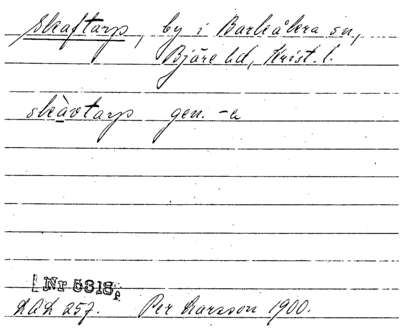 Skaftarp, by i Barkåkra sn,
Bjäre hd, Krist. l.
skàvtarp gen. -a
[Nr 5318,
DAL 257. Per Larsson 1900.